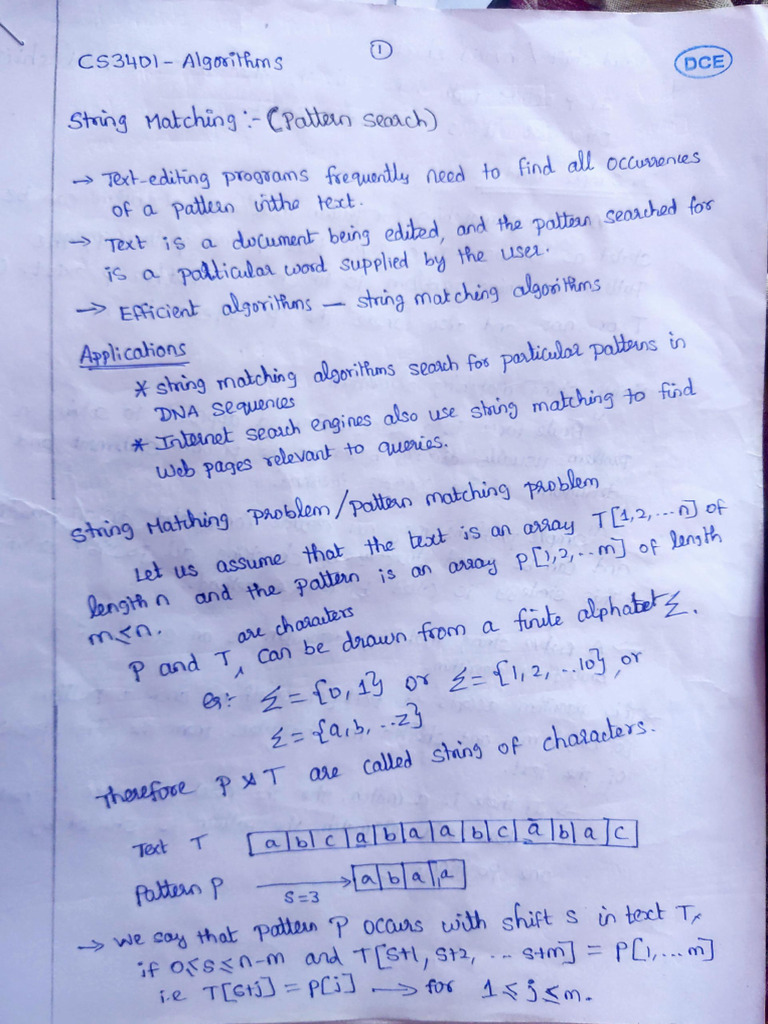 ①
CS3401 - Algorithms
DCE
String Matching :- (Pattern search)
→ Text-editing programs frequently need to find all occurrences
of a pattern inthe text.
→ Text is a document being edited, and the pattern searched for
is a particular word supplied by the user.
→ Efficient algorithms — string matching algorithms
Applications
* string matching algorithms search for particular patterns in
DNA sequences
* Internet search engines also use string matching to find
web pages relevant to queries.
String Matching problem / pattern matching problem
Let us assume that the text is an array T[1,2,...n] of
length n and the pattern is an array P[1,2,..m] of length
m≤n.
are characters
P and T, can be drawn from a finite alphabet Σ.
eg:- Σ = {0,1} or Σ = {1,2,...10}, or
Σ = {a,b,..z}
Therefore P & T are called string of characters.
Text T |a|b|c|a|b|a|a|b|c|a|b|a|c|
Pattern P s=3 → |a|b|a|a|
→ We say that pattern P occurs with shift s in text T,
if 0≤s≤n-m and T[s+1, s+2, ... s+m] = P[1,...m]
i.e T[s+j] = P[j] → for 1≤j≤m.